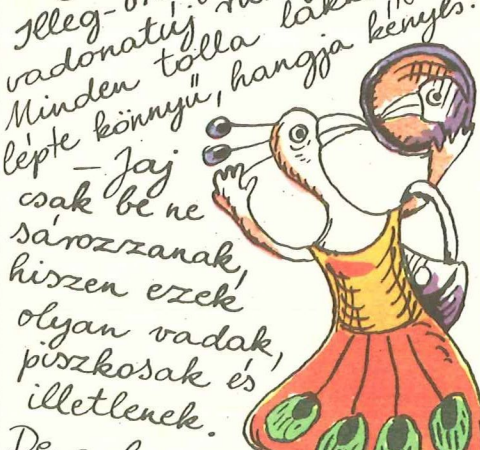 Illeg-
vadonatúj
Minden tolla
lépte könnyű, hangja kényes.
— Jaj
csak be ne
sározzanak,
hiszen ezek
olyan vadak,
piszkosak és
illetlenek.
De